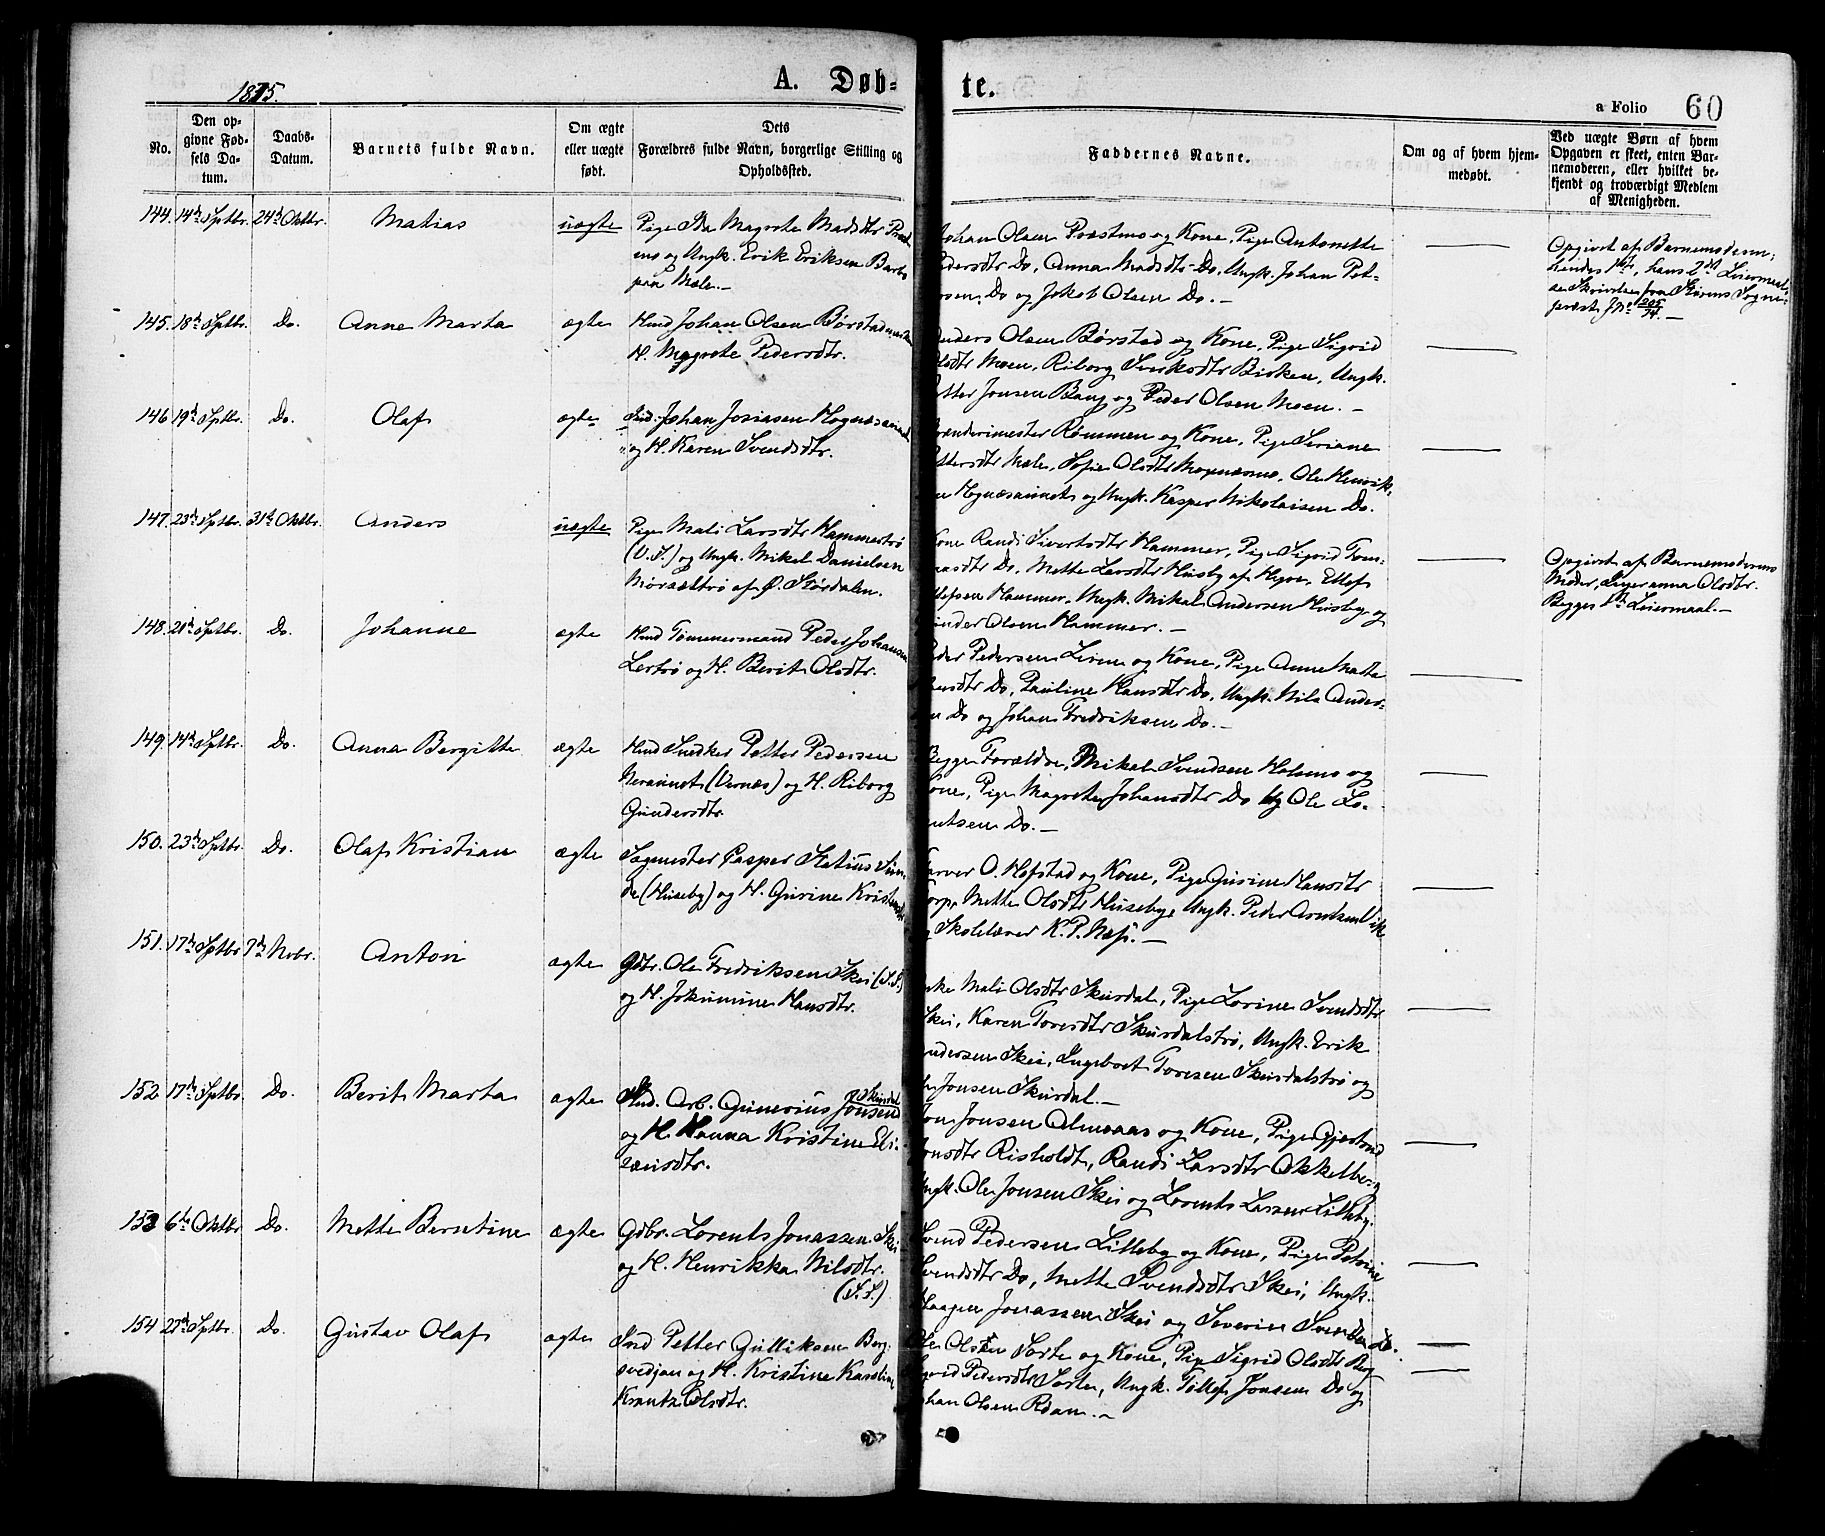 1875.
A. Døb-
te.
a Folio 60
No.
Den op-
givne Fød-
sels Da-
tum.
Daabs-
Datum.
Barnets fulde Navn.
Om ægte
eller uægte
født.
Dets
Forældres fulde Navn, borgerlige Stilling og
Opholdssted.
Faddernes Navne.
Om og af hvem hjem-
medøbt.
Ved uægte Børn af hvem
Opgaven er skeet, enten Bar-
nemoderen, eller hvilket be-
kjendt og troværdigt Medlem
af Menigheden.
144. 14de Sptbr. 24de Oktbr. Matias uægte
Pige Magrete Madsdtr
og Ungk. Erik Eriksen
Johan Olsen Præstmo og Kone, Pige Antonette
Pedersdtr Do, Anna Madsdtr Do, Ungk. Johan Pet-
ersen Do og Jakob Olsen Do. —
Opgivet af Barnemoderen,
hendes 1ste, hans 2det Leiermaal,
se Skrivelse fra Størens Sogne-
præst
145. 18de Sptbr. Do. Anne Marta ægte
Hmd Johan Olsen
H. Magrete Pedersdtr.
Anders Olsen Børstad og Kone, Pige Sigrid
Olsdtr Moen, Riborg Birken, Ungk.
Petter Jonsen Bang og Peder Olsen Moen. —
146 19de Sptbr. Do. Olaf ægte
Johan Josiasen
og H. Karen Svendsdtr.
Rømmen og Kone, Pige
Pettersdtr Mæle, Sofie Olsdtr, Ole Henrik-
og Ungk. Kasper Nikolaisen Do.
147. 23de Sptbr. 31te Oktbr. Anders uægte
Pige Mali Larsdtr Hammertrø
(V.S.) og Ungk. Mikal Danielsen
af Ø. Størdalen.
Kone Randi Sivertsdtr Hammer, Pige Sigrid Tom-
asdtr Do, Mette Larsdtr Husby af
Hammer, Ungk. Mikal Andersen Husby og
Olsen Hammer. —
Opgivet af Barnemoderens
Moder, Olsdtr.
Begges 1ste Leiermaal. —
148. Sptbr. Do. Johanne ægte
Hmd Tømmermand Peder Johansen
Lertrø og H. Berit Olsdtr.
Peder Pedersen og Kone, Pige Anne Marta
Do, Pauline Hansdtr Do, Ungk. Nils Ander-
sen Do og Johan Fredriksen Do. —
149. 14de Sptbr. Do. Anna Bergitte ægte
Hmd Snedker Petter Pedersen
(Værnes) og H. Riborg
Gundersdtr.
Begge Forældre, Mikal Svendsen Holmo og
Kone, Pige Magrete Johansdtr Do og Ole Lo-
rntsen Do. —
150. 23de Sptbr. Do. Olaf Kristian ægte
Sagmester Casper
(Huseby) og H. Gurine
Garver O. Hofstad og Kone, Pige Gurine Hansdtr
Mette Olsdtr Huseby, Ungk. Peder Arntsen
og Skolelærer K. P. —
151. 17de Sptbr 7de Novbr. Anton ægte
Gdbr. Ole Fredriksen Skei (S.S.)
og H. Jokumine Hansdtr.
Enke Mali Olsdtr Skurdal, Pige Lorine Svendsdtr
Skei, Karen Toresdtr Skurdalstrø, Ungk. Erik
Andersen Skei, Toresen Skurdalstrø og
Jonsen Skurdal. —
152 17de Sptbr Do. Berit Marta ægte
Ind. Arb. Gunerius Jonsen Skurdal
og H. Hanna Kristine Eli-
Jon Jonsen Almaas og Kone, Pige
Risholdt, Randi Larsdtr Okkelberg
Ungk. Ole Jonsen Skei og Lorents Larsen Lilleby.
153 6te Oktbr Do. Mette Berntine ægte
Gdbr. Lorents Jonassen Skei
og H. Henrikka Nilsdtr.
(S.S.)
Svend Pedersen Lilleby og Kone, Pige Petrine
Svendsdtr Do, Mette Svendsdtr Skei, Ungk.
Haagen Jonassen Skei og Severin Svendsen Do.
154 Sptbr. Do. Gustav Olaf ægte
Ind Petter Gulliksen Berg-
og H. Kristine Karoline
Olsdtr.
Ole Olsen Sorte og Kone, Pige Sigrid Olsdtr Berg
Pedersdtr Sorte, Ungk. Tollef Jonsen Do og
Johan Olsen —